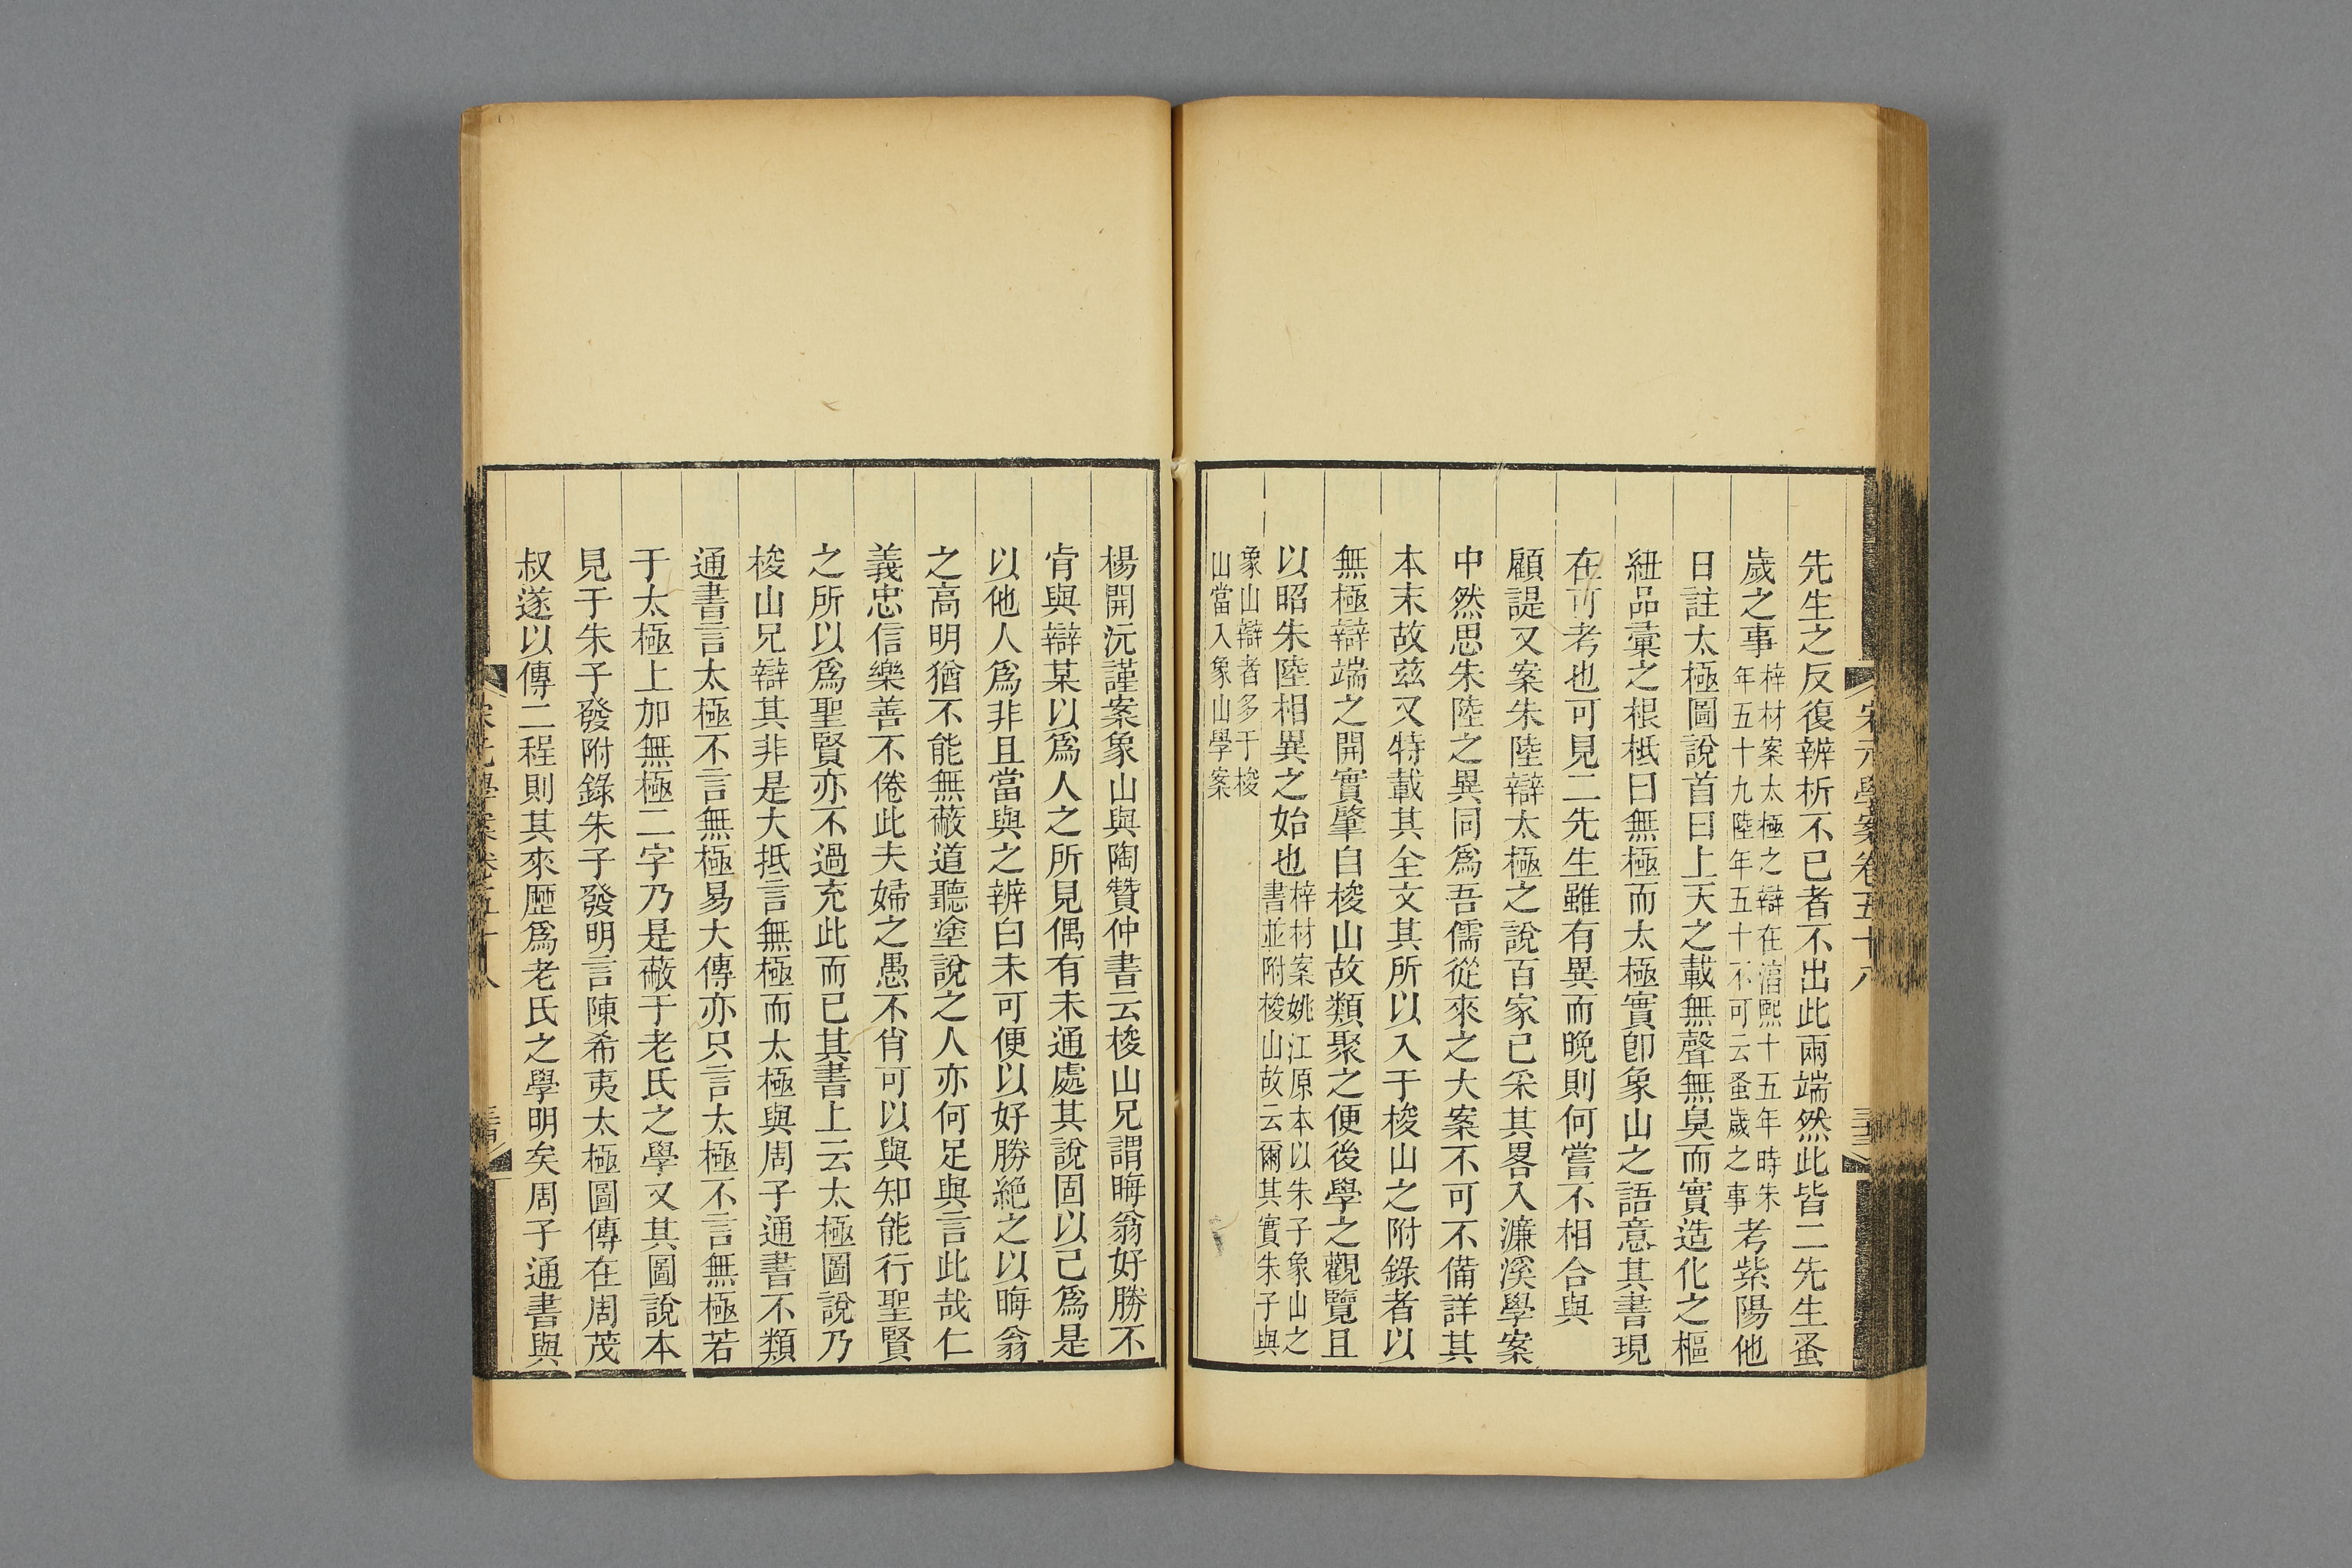 宋元學案卷五十八
先生之反復辨析不已者不出此兩端然此皆二先生蚤
歲之事梓材案太極之辯在淳熙十五年時朱年五十九陸年五十不可云蚤歲之事考紫陽他
日註太極圖說首曰上天之載無聲無臭而實造化之樞
紐品彙之根柢曰無極而太極實卽象山之語意其書現
在可考也可見二先生雖有異而晚則何嘗不相合與
顧諟又案朱陸辯太極之說百家已采其畧入濂溪學案
中然思朱陸之異同爲吾儒從來之大案不可不備詳其
本末故兹又特載其全文其所以入于梭山之附錄者以
無極辯端之開實肇自梭山故類聚之便後學之觀覽且
以昭朱陸相異之始也梓材案姚江原本以朱子象山之書並附梭山故云爾其實朱子與
象山辯者多于梭山當入象山學案
楊開沅謹案象山與陶贊仲書云梭山兄謂晦翁好勝不
肯與辯某以爲人之所見偶有未通處其說固以己爲是
以他人爲非且當與之辨白未可便以好勝絶之以晦翁
之高明猶不能無蔽道聽塗說之人亦何足與言此哉仁
義忠信樂善不倦此夫婦之愚不肖可以與知能行聖賢
之所以爲聖賢亦不過充此而已其書上云太極圖說乃
梭山兄辯其非是大抵言無極而太極與周子通書不類
通書言太極不言無極易大傳亦只言太極不言無極若
于太極上加無極二字乃是蔽于老氏之學又其圖說本
見于朱子發附錄朱子發明言陳希夷太極圖傳在周茂
叔遂以傳二程則其來歷爲老氏之學明矣周子通書與
宋元學案卷五十八